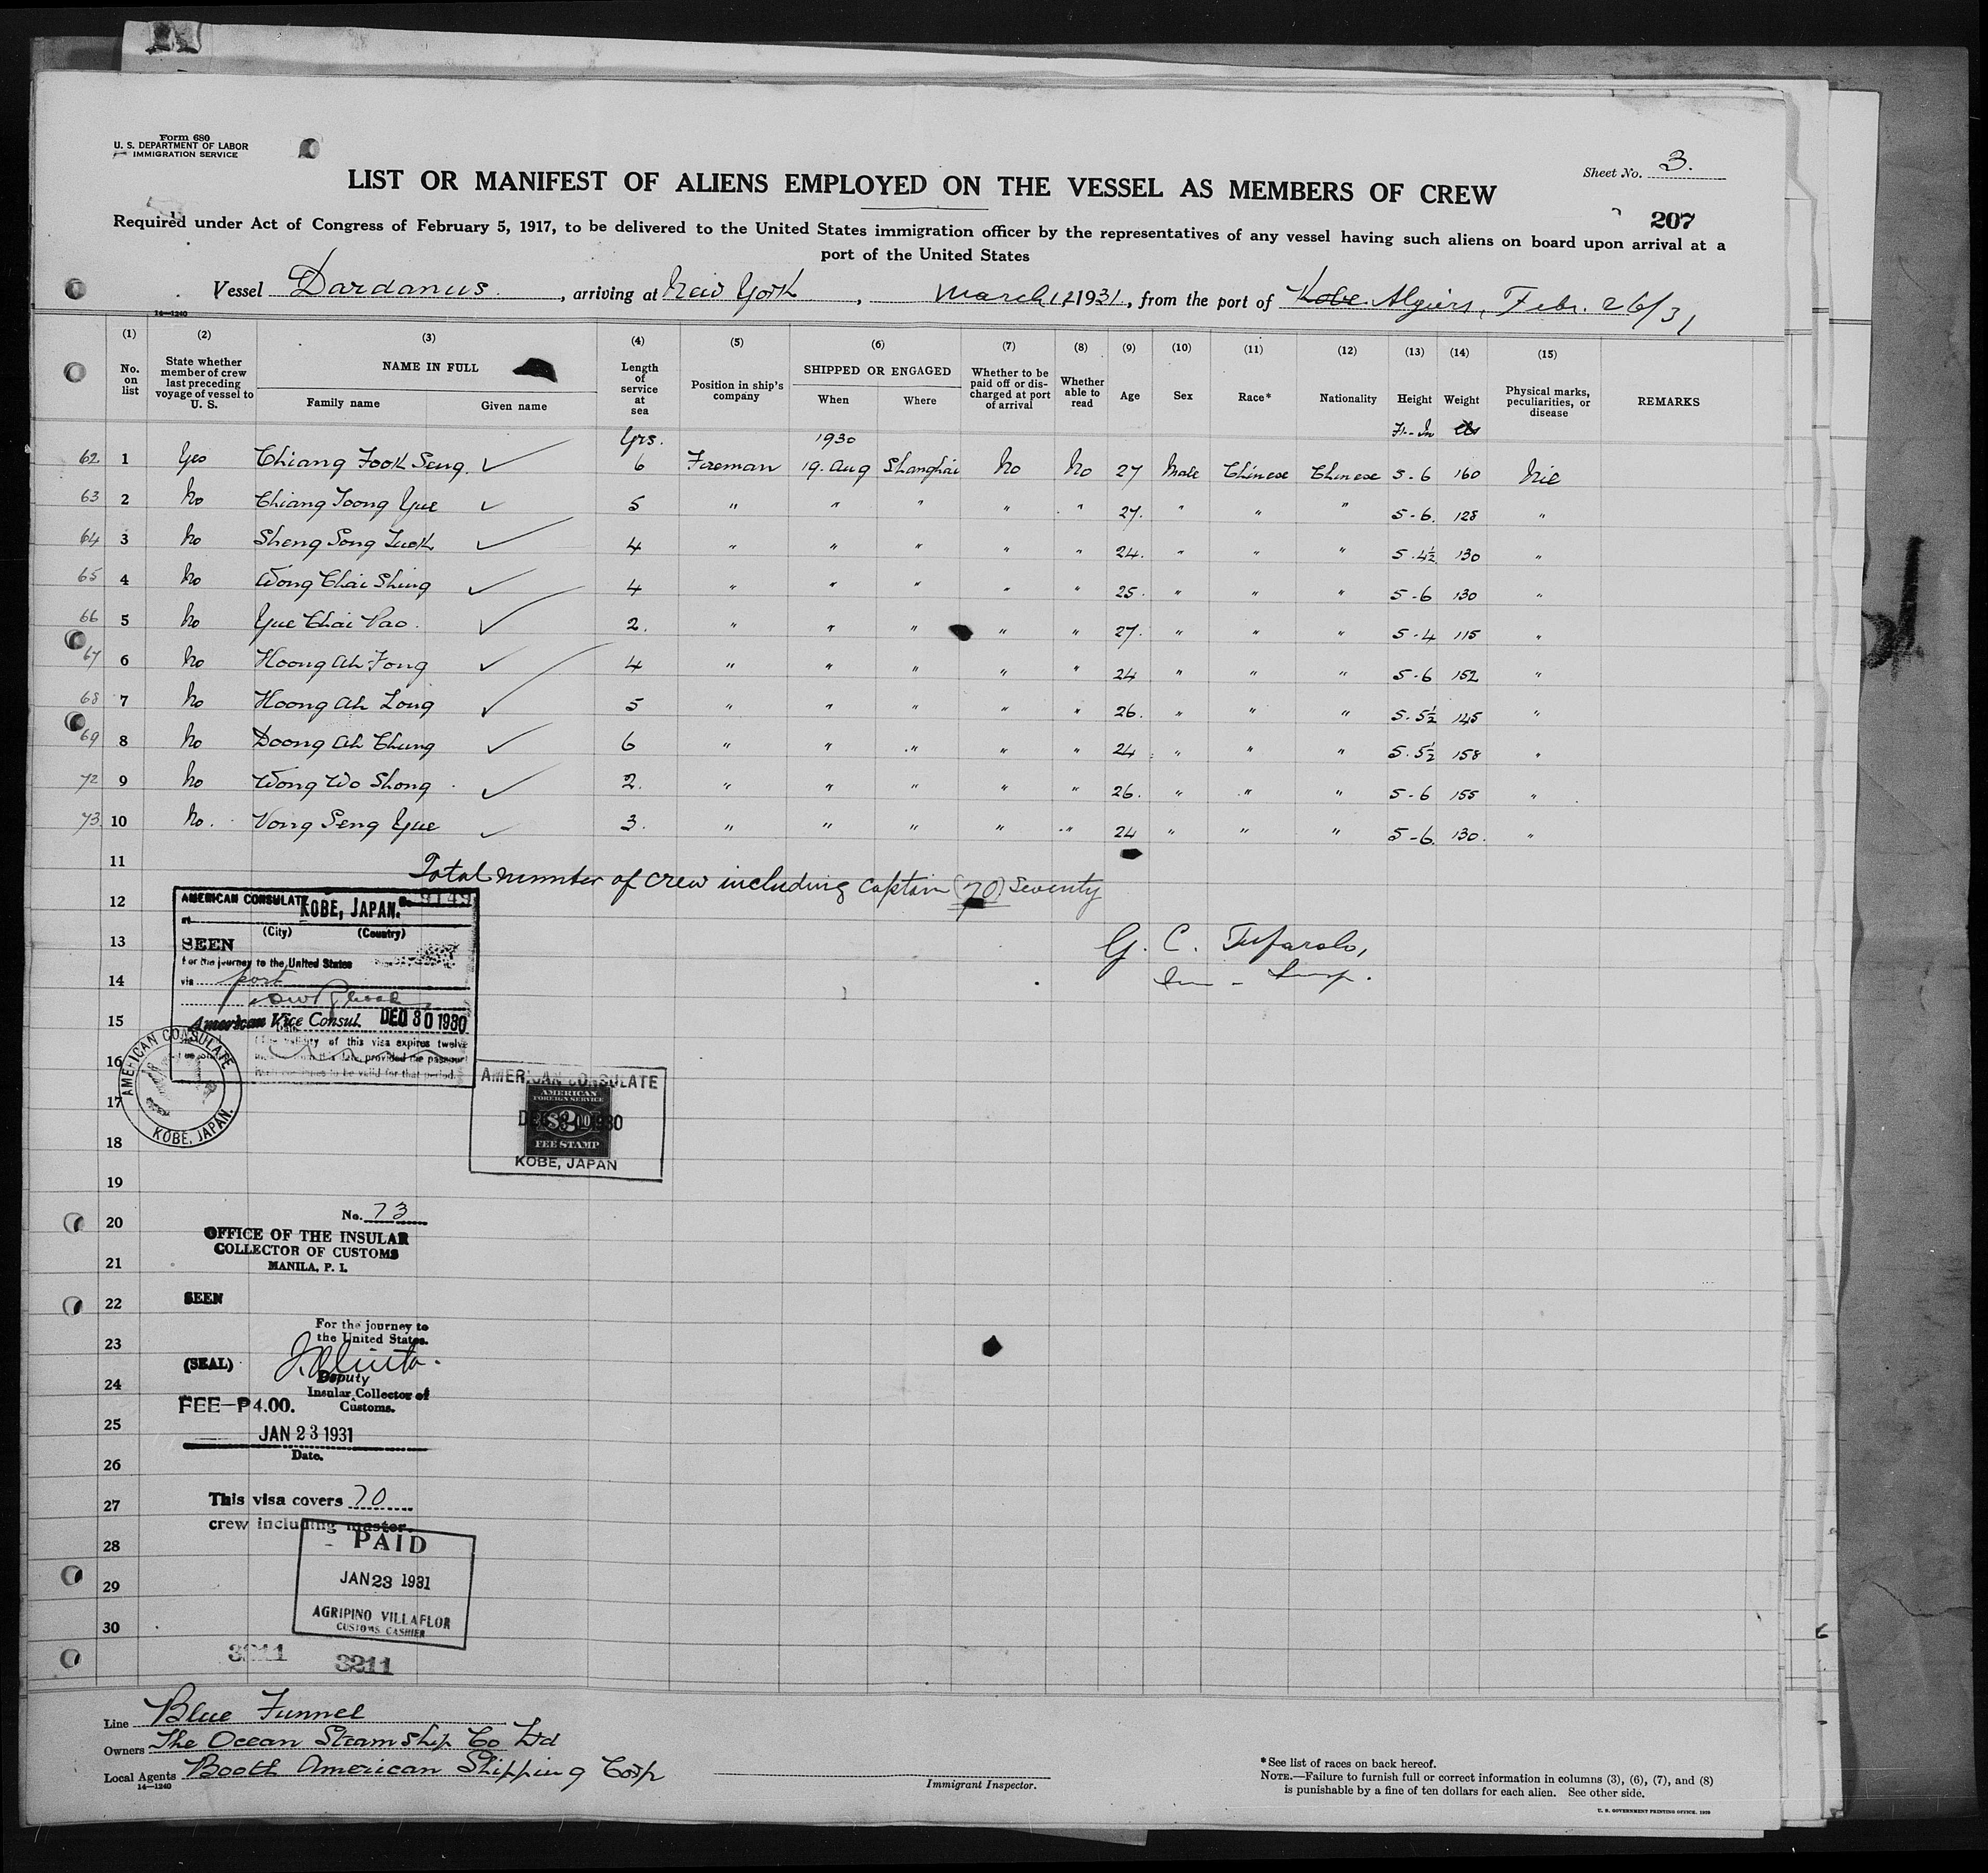 Form 680
U. S. DEPARTMENT OF LABOR
IMMIGRATION SERVICE
Sheet No. 3.
LIST OR MANIFEST OF ALIENS EMPLOYED ON THE VESSEL AS MEMBERS OF CREW
207
Required under Act of Congress of February 5, 1917, to be delivered to the United States immigration officer by the representatives of any vessel having such aliens on board upon arrival at a
port of the United States
Vessel Dardanus, arriving at New York, March 12 1931, from the port of Kobe Algiers, Febr. 26/31
14—1240
(1) (2) (3) (4) (5) (6) (7) (8) (9) (10) (11) (12) (13) (14) (15)
No. on list
State whether member of crew last preceding voyage of vessel to U. S.
NAME IN FULL
Family name Given name
Length of service at sea
Position in ship's company
SHIPPED OR ENGAGED
When Where
Whether to be paid off or discharged at port of arrival
Whether able to read
Age Sex Race* Nationality Height Weight
Physical marks, peculiarities, or disease
REMARKS
Yrs. 1930 Ft - In lbs
62 1 Yes Chiang Fook Seng. ✓ 6 Fireman 19. Aug Shanghai No No 27 Male Chinese Chinese 5-6 160 Nil
63 2 No Chiang Toong Yue ✓ 5 " " " " " 27. " " " 5-6. 128 "
64 3 No Sheng Song Tuck ✓ 4 " " " " " 24. " " " 5-4½ 130 "
65 4 No Wong Chai Shing ✓ 4 " " " " " 25. " " " 5-6 130 "
66 5 No Yue Chai Pao. ✓ 2. " " " " " 27. " " " 5-4 115 "
67 6 No Hoong Ah Fong ✓ 4 " " " " " 24 " " " 5-6 152 "
68 7 No Hoong Ah Long ✓ 5 " " " " " 26. " " " 5-5½ 145 "
69 8 No Doong Ah Chung ✓ 6 " " " " " 24 " " " 5-5½ 158 "
72 9 No Wong Wo Shong ✓ 2. " " " " " 26. " " " 5-6 155 "
73 10 No. Vong Seng Yue ✓ 3. " " " " " 24 " " " 5-6. 130. "
11
Total number of crew including Captain (70) Seventy
12
AMERICAN CONSULATE No. 9149
at KOBE, JAPAN.
(City) (Country)
13
SEEN
G. C.
For the journey to the United States
14
via port
15
American Vice Consul. DEC 30 1930
The validity of this visa expires twelve
16
provided the passport
continues to be valid for that period.
AMERICAN CONSULATE
KOBE, JAPAN.
17
AMERICAN CONSULATE
AMERICAN
FOREIGN SERVICE
DEC 30 1930
FEE STAMP
KOBE, JAPAN
18
19
No. 73
20
OFFICE OF THE INSULAR
COLLECTOR OF CUSTOMS
MANILA, P. I.
21
22
SEEN
For the journey to
the United States.
23
(SEAL)
Deputy
24
Insular Collector of
Customs.
FEE—₱4.00.
25
JAN 23 1931
Date.
26
This visa covers 70
27
crew including master.
PAID
28
JAN 23 1931
29
AGRIPINO VILLAFLOR
CUSTOMS CASHIER
30
3211 3211
Line Blue Funnel
Owners The Ocean Steamship Co Ltd
Local Agents Booth American Shipping Corp
14—1240
Immigrant Inspector.
*See list of races on back hereof.
NOTE.—Failure to furnish full or correct information in columns (3), (6), (7), and (8)
is punishable by a fine of ten dollars for each alien. See other side.
U. S. GOVERNMENT PRINTING OFFICE. 1929